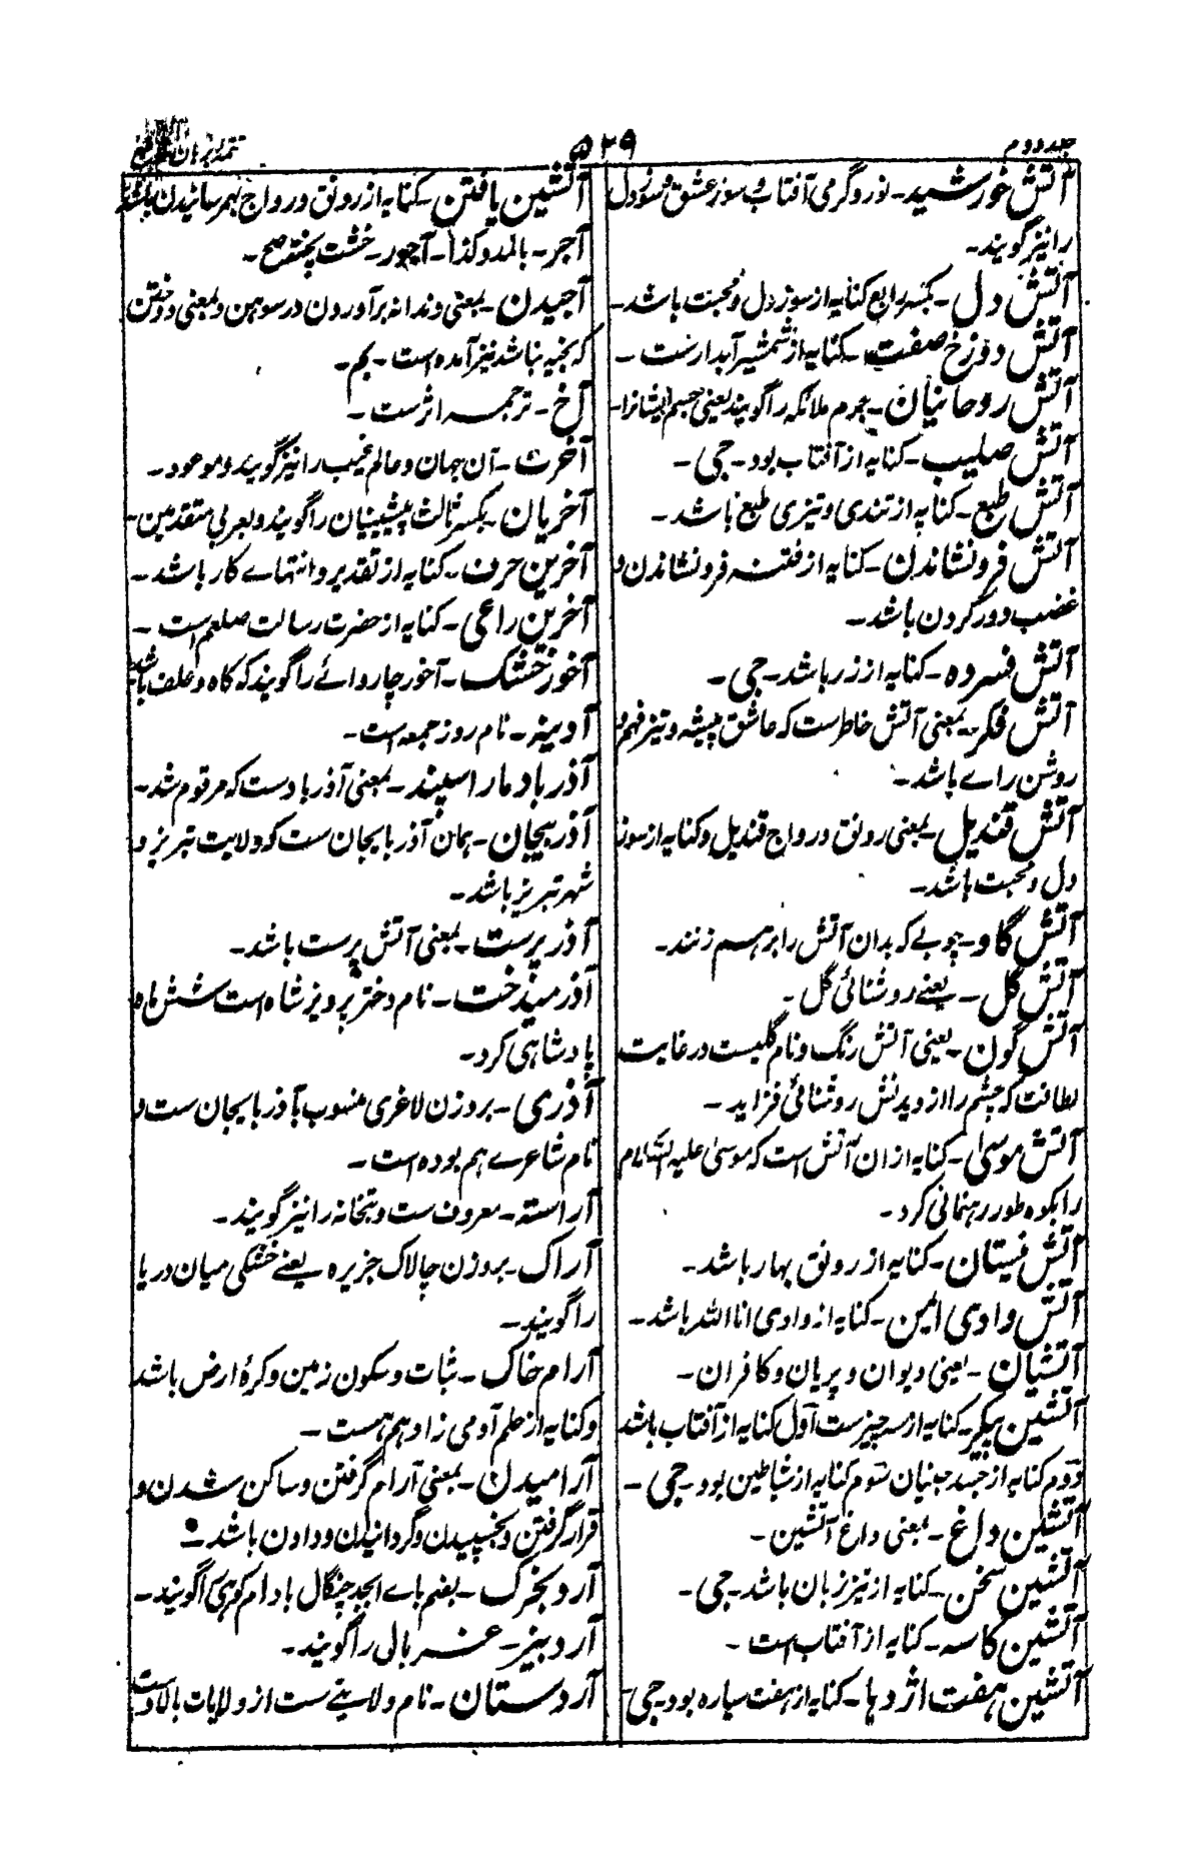 جلد دوم
۵۲۹
تتمہ برہان قاطع
آتش خورشید۔ نور و گرمی آفتاب و سوز عشق و سوز دل
را نیز گویند۔
آتش دل۔ بکسر رابع کنایہ از سوز دل و محبت باشد۔
آتش دوزخ صفت۔ کنایہ از شمشیر آبدارست۔
آتش روحانیان۔ جرم ملائکہ را گویند یعنی جسم ایشانرا۔
آتش صلیب۔ کنایہ از آفتاب بود۔ جی۔
آتش طبع۔ کنایہ از تندی و تیزی طبع باشد۔
آتش فرونشاندن۔ کنایہ از فتنہ فرونشاندن و
غضب دور کردن باشد۔
آتش فسردہ۔ کنایہ از زر باشد۔ جی۔
آتش فکر۔ بمعنی آتش خاطرست کہ عاشق پیشہ و تیز فہم و
روشن راے باشد۔
آتش قندیل۔ بمعنی رونق و رواج قندیل و کنایہ از سوز
دل و محبت باشد۔
آتش گاو۔ چوبے کہ بدان آتش را برہم زنند۔
آتش گل۔ یعنے روشنائی گل۔
آتش گون۔ یعنی آتش رنگ و نام گلیست در غایت
لطافت کہ چشم را از دیدنش روشنائی فزاید۔
آتش موسیٰ۔ کنایہ ازان آتش است کہ موسیٰ علیہ السلام
را بکوہ طور رہنمائی کرد۔
آتش نیستان۔ کنایہ از رونق بہار باشد۔
آتش وادی ایمن۔ کنایہ از وادی انا اللہ باشد۔
آتشیان۔ یعنی دیوان و پریان و کافران۔
آتشین پیکر۔ کنایہ از سہ چیزست اول کنایہ از آفتاب باشد
دوم کنایہ از جسد جنیان سوم کنایہ از شیاطین بود۔ جی۔
آتشین داغ۔ بمعنی داغ آتشین۔
آتشین سخن۔ کنایہ از تیز زبان باشد۔ جی۔
آتشین کاسہ۔ کنایہ از آفتاب است۔
آتشین ہفت اژدہا۔ کنایہ از ہفت سیارہ بود۔ جی۔
آتشین یافتن۔ کنایہ از رونق و رواج بہم رسانیدن باشد
آجر۔ بالمد و کذا۔ آجور۔ خشت پختہ۔ صح۔
آجیدن۔ بمعنی دندانہ برآوردن در سوہن و بمعنی دوختن
کہ بخیہ نباشد نیز آمدہ است۔ بم۔
آخ۔ ترجمہ اثرست۔
آخرت۔ آن جہان و عالم غیب را نیز گویند و موعود۔
آخریان۔ بکسر ثالث پیشینیان را گویند و بعربی متقدمین۔
آخرین حرف۔ کنایہ از تقدیر و انتہاے کار باشد۔
آخرین راعی۔ کنایہ از حضرت رسالت صلعم است۔
آخور خشک۔ آخور چاروائے را گویند کہ کاہ و علف باشد
آدینہ۔ نام روز جمعہ است۔
آذرباد ماراسپند۔ بمعنی آذربادست کہ مرقوم شد۔
آذربیجان۔ ہمان آذربایجان ست کہ ولایت تبریز و
شہر تبریز باشد۔
آذر پرست۔ بمعنی آتش پرست باشد۔
آذرمیدخت۔ نام دختر پرویز شاہ است شش ماہ
بادشاہی کرد۔
آذری۔ بروزن لاغری منسوب بآذربایجان ست و
نام شاعرے ہم بودہ است۔
آراستہ۔ معروف ست و بتخانہ را نیز گویند۔
آراک۔ بروزن چالاک جزیرہ یعنے خشکی میان دریا
را گویند۔
آرام خاک۔ ثبات و سکون زمین و کرۂ ارض باشد
و کنایہ از حلم آدمی زاد ہم ہست۔
آرامیدن۔ بمعنی آرام گرفتن و ساکن شدن و
قرار گرفتن و بخسپیدن و گردانیدن و دادن باشد۔
آرد بخرک۔ بضم باے ابجد چنگال بادام کوہی را گویند۔
آرد بیز۔ غربال را گویند۔
آردستان۔ نام ولایتے ست از ولایات بالادست